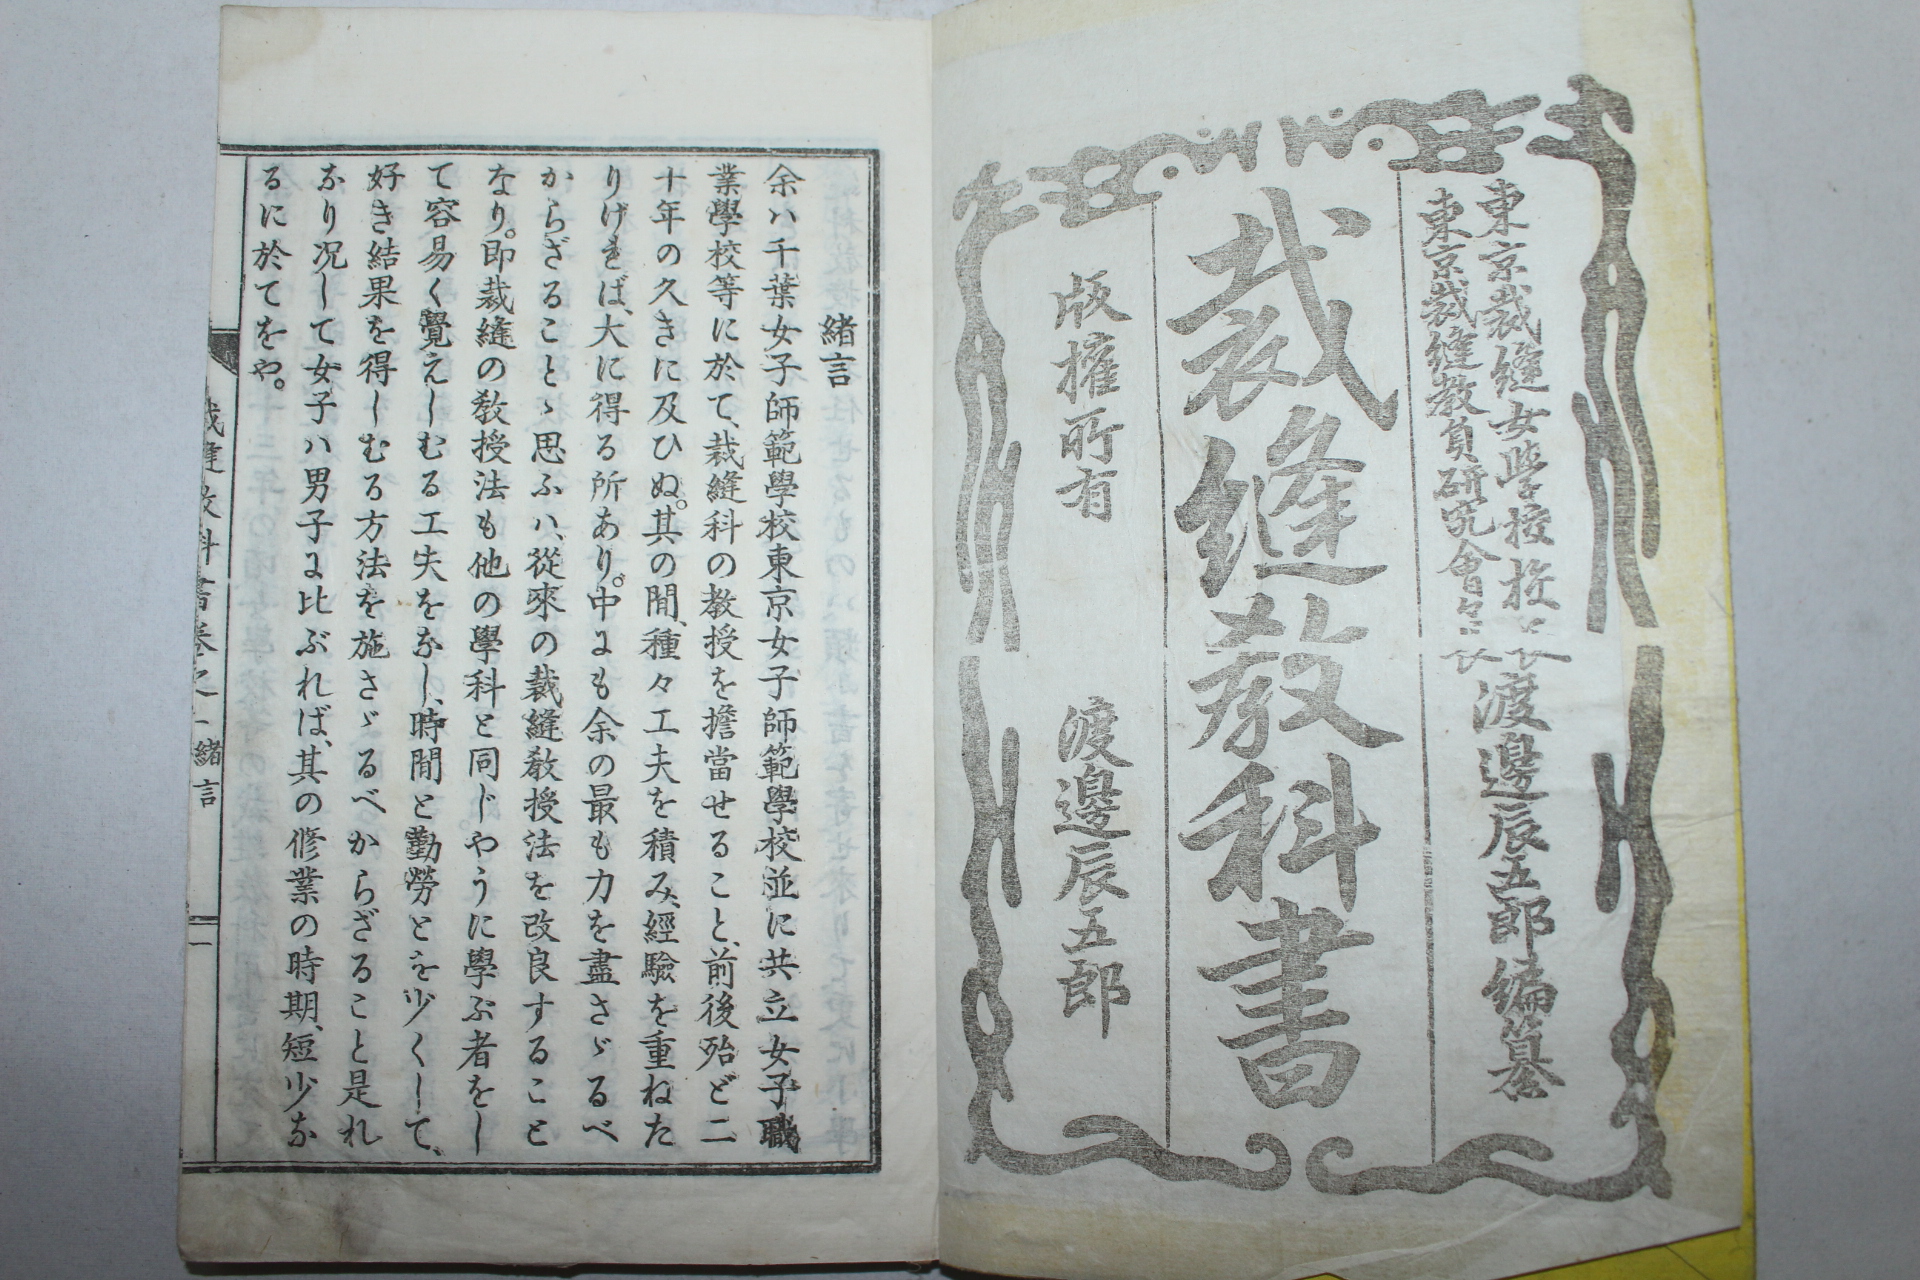 東京裁縫女學校校長
東京裁縫教員研究會々長
渡邊辰五郎編纂
裁縫教科書
版權所有
渡邊辰五郎
緒言
余ハ千葉女子師範學校東京女子師範學校並に共立女子職
業學校等に於て、裁縫科の教授を擔當せること、前後殆ど二
十年の久きに及ひぬ。其の間、種々工夫を積み、經驗を重ねた
りければ、大に得る所あり。中にも余の最も力を盡さゞるべ
からざることゝ思ふハ、從來の裁縫教授法を改良すること
なり。即裁縫の教授法も他の學科と同じやうに學ぶ者をし
て容易く覺えしむる工夫をなし、時間と勤勞とを少くして、
好き結果を得しむる方法を施さゞるべからざること是れ
なり況して女子ハ男子に比ぶれば、其の修業の時期、短少な
るに於てをや。
裁縫教科書卷之一 緒言
一